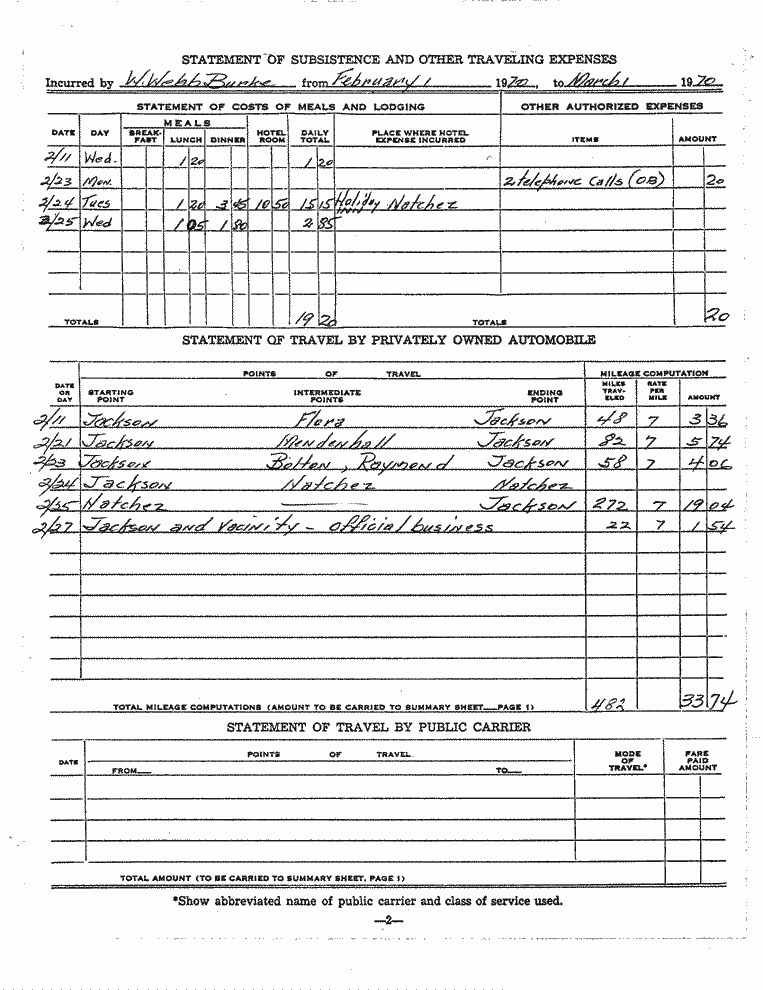 STATEMENT OF SUBSISTENCE AND OTHER TRAVELING EXPENSES
Incurred by W. Webb Burke from February 1 1970, to March 1 1970
STATEMENT OF COSTS OF MEALS AND LODGING OTHER AUTHORIZED EXPENSES
MEALS
DATE DAY BREAK-FAST LUNCH DINNER HOTEL ROOM DAILY TOTAL PLACE WHERE HOTEL EXPENSE INCURRED ITEMS AMOUNT
2/11 Wed. 1 20 1 20
2/23 Mon. 2 telephone calls (OB) 20
2/24 Tues 1 20 3 45 10 50 15 15 Holiday Inn Natchez
2/25 Wed 1 05 1 80 2 85
TOTALS 19 20 TOTALS 20
STATEMENT OF TRAVEL BY PRIVATELY OWNED AUTOMOBILE
POINTS OF TRAVEL MILEAGE COMPUTATION
DATE OR DAY STARTING POINT INTERMEDIATE POINTS ENDING POINT MILES TRAV-ELED RATE PER MILE AMOUNT
2/11 Jackson Flora Jackson 48 7 3 36
2/21 Jackson Mendenhall Jackson 82 7 5 74
2/23 Jackson Bolton, Raymond Jackson 58 7 4 06
2/24 Jackson Natchez Natchez
2/25 Natchez — Jackson 272 7 19 04
2/27 Jackson and Vacinity - official business 22 7 1 54
TOTAL MILEAGE COMPUTATIONS (AMOUNT TO BE CARRIED TO SUMMARY SHEET—PAGE 1) 482 33 74
STATEMENT OF TRAVEL BY PUBLIC CARRIER
DATE POINTS OF TRAVEL MODE OF TRAVEL* FARE PAID AMOUNT
FROM— TO—
TOTAL AMOUNT (TO BE CARRIED TO SUMMARY SHEET, PAGE 1)
*Show abbreviated name of public carrier and class of service used.
—2—